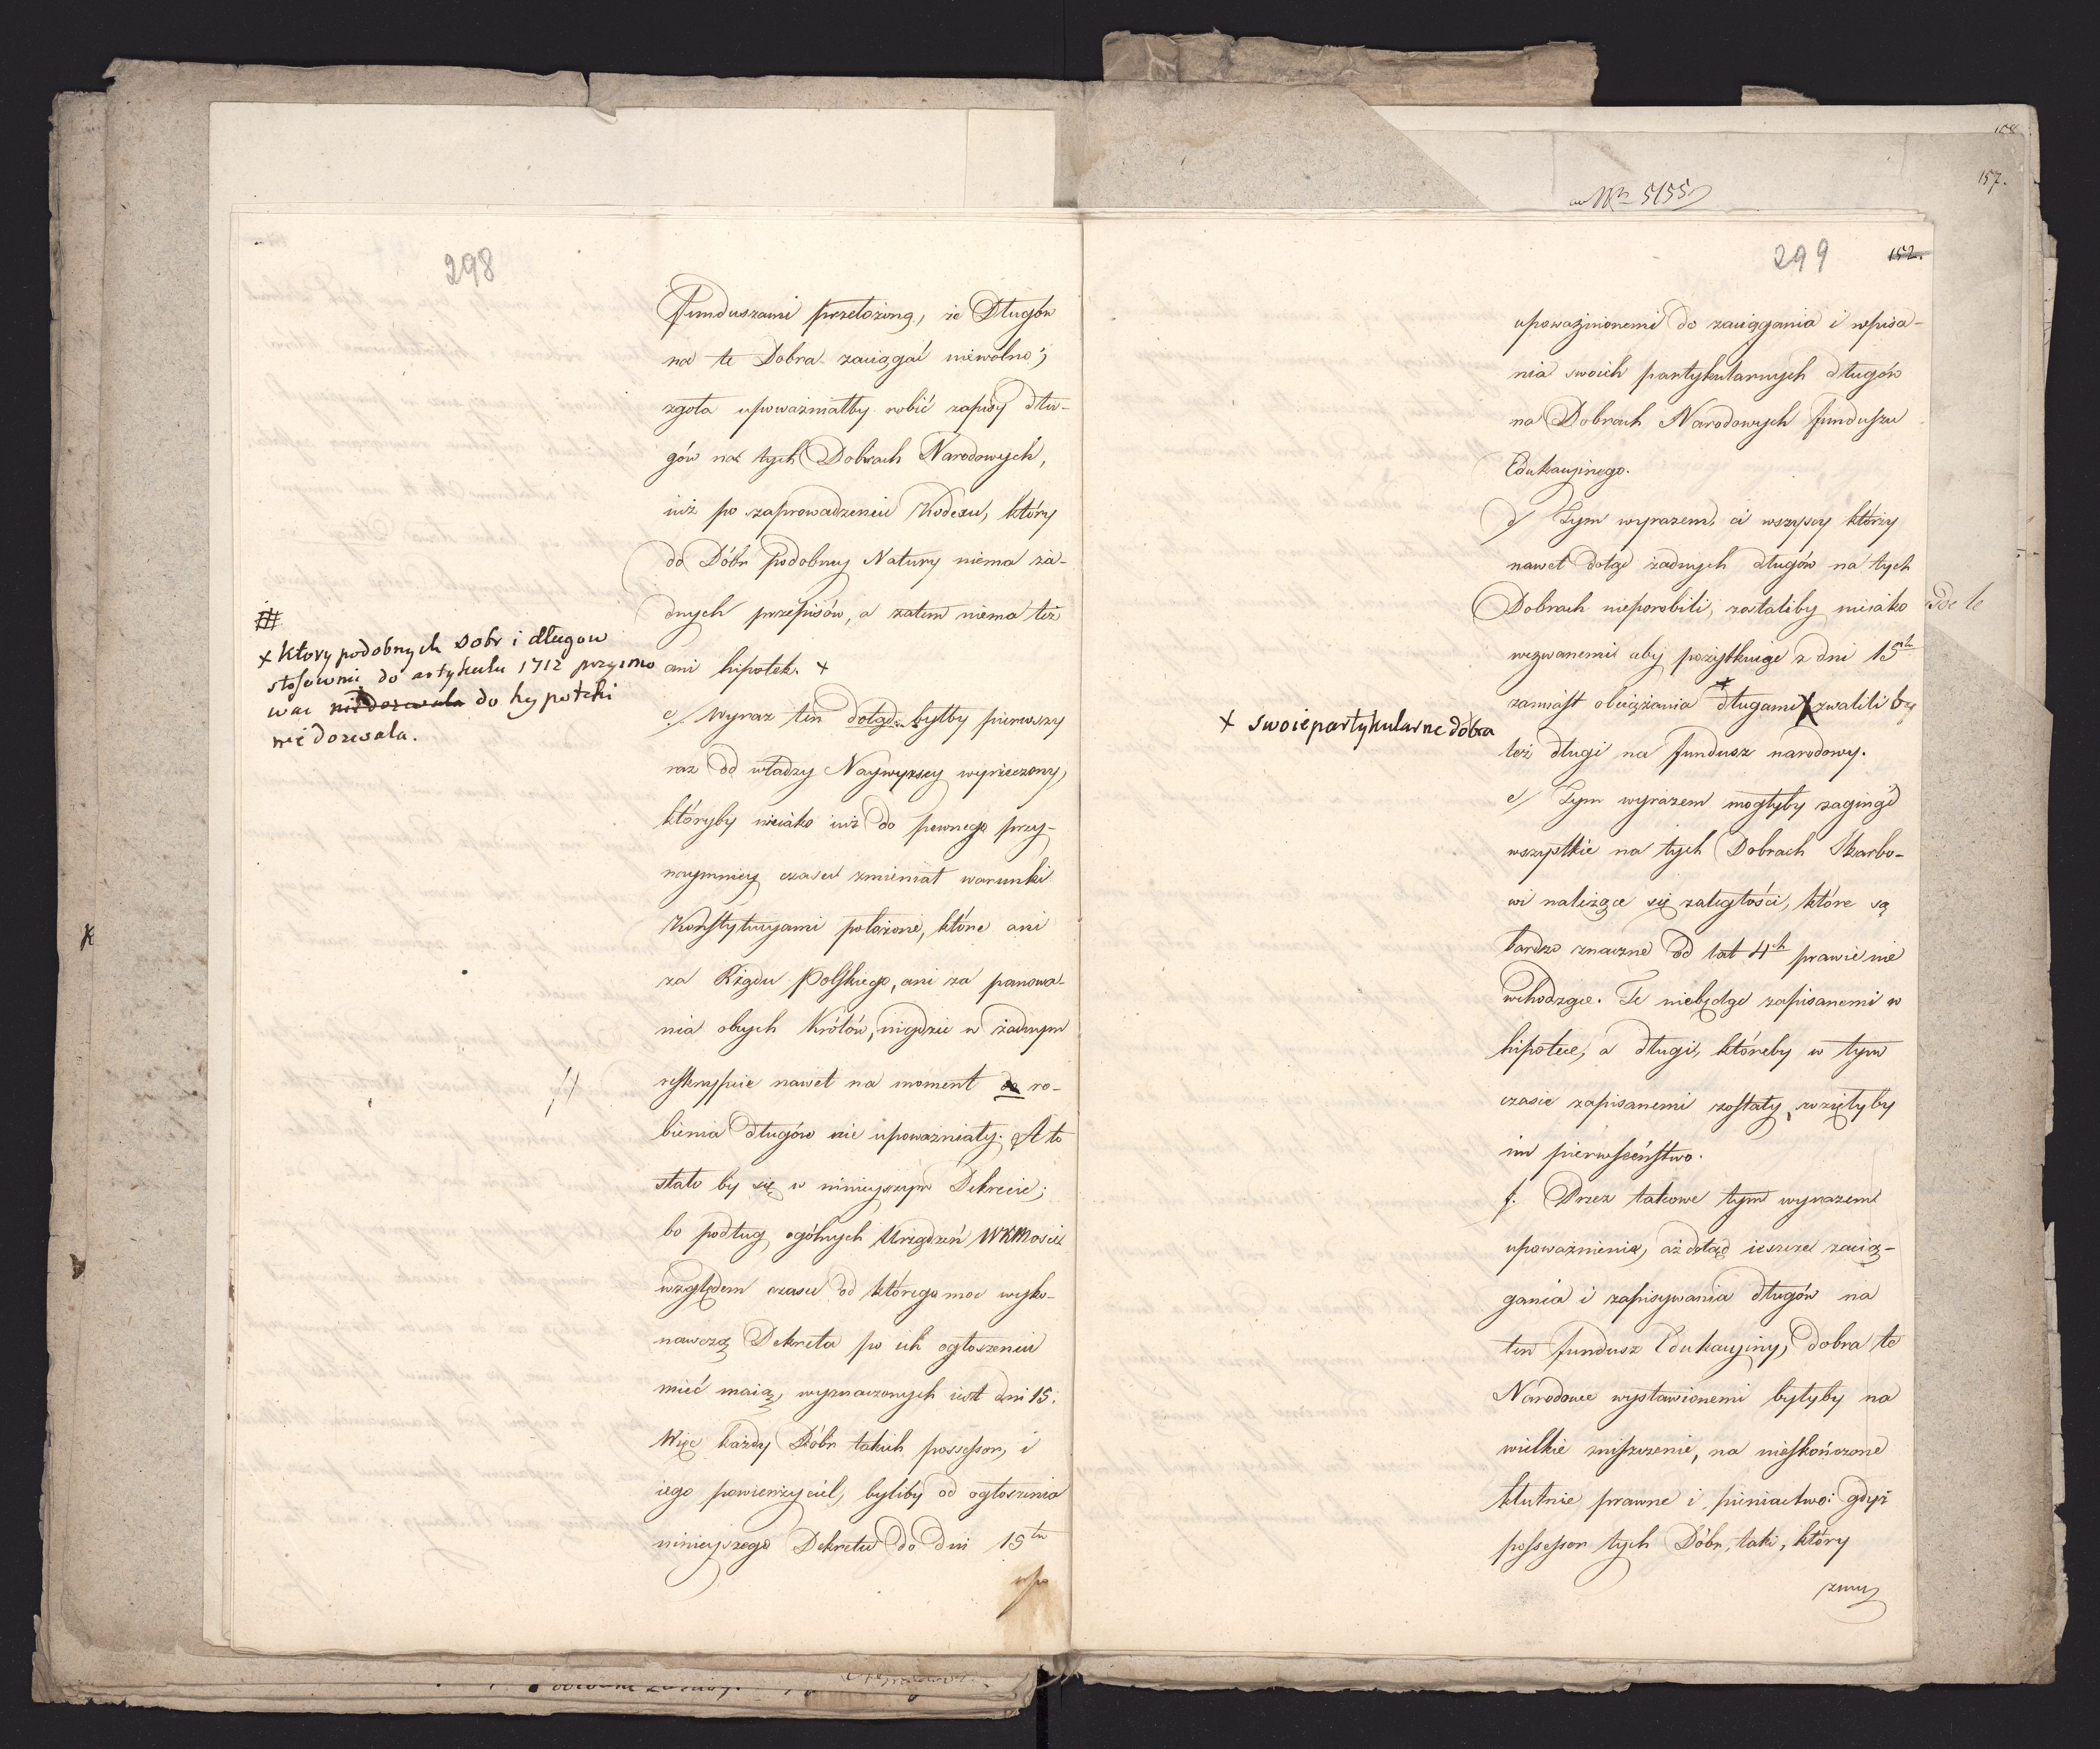 298
Funduszami przełożoną, że Długów
na te Dobra zaciągać niewolno;
zgoła upoważniałby robić zapisy dłu-
gów na tych Dobrach Narodowych,
iuż po zaprowadzeniu Kodexu, który
do Dóbr podobney Natury niema ża-
dnych przepisów, a zatem niema też
ani hipotek. +
+ ktory podobnych dobr i długow
stosownie do artykułu 1712 przyimo
wac niedozwala do hypoteki
nie dozwala.
c/ Wyraz ten dotąd byłby pierwszy
raz od władzy Naywyższey wyrzeczony,
któryby nieiako iuż do pewnego przy-
naymniey czasu zmieniał warunki
Konstytucyami położone, które ani
za Rządu Polskiego, ani za panowa-
nia obcych Królów, nigdzie w żadnym
reskrypcie nawet na moment do ro-
bienia długów nie upoważniały. A to
stało by się w ninieyszym Dekrecie;
bo podług ogólnych Urządzeń WKMości
względem czasu od którego moc wyko-
nawczą Dekreta po ich ogłoszeniu
mieć maią, wyznaczonych iest dni 15.
Więc każdy Dóbr takich possessor, i
iego powierzyciel, byliby od ogłoszenia
ninieyszego Dekretu do dni 15tu
upo
No 5155
157.
299
152.
upoważnionemi do zaciągania i wpisa-
nia swoich partykularnych długów
na Dobrach Narodowych funduszu
Edukacyinego.
d/ Tym wyrazem, ci wszyscy którzy
nawet dotąd żadnych długów na tych
Dobrach nieporobili, zostaliby nieiako
wezwanemi aby pożytkuiąc z dni 15tu
zamiast obciążania długami zwaliliby
+ swoie partykularne dobra
też długi na fundusz narodowy.
e/ Tym wyrazem mogłyby zaginąć
wszystkie na tych Dobrach Skarbo-
wi należące się zaległości, które są
bardzo znaczne od lat 4ch prawie nie
wchodzące. Te niebędąc zapisanemi w
hipotece, a długi, któreby w tym
czasie zapisanemi zostały, wzięłyby
im pierwszeństwo.
f. Przez takowe tym wyrazem
upoważnienie, aż dotąd ieszcze zacią-
gania i zapisywania długów na
ten fundusz Edukacyiny, dobra te
Narodowe wystawionemi byłyby na
wielkie zniszczenie, na nieskończone
kłutnie prawne i pieniactwo: gdyż
possessor tych Dóbr, taki, który